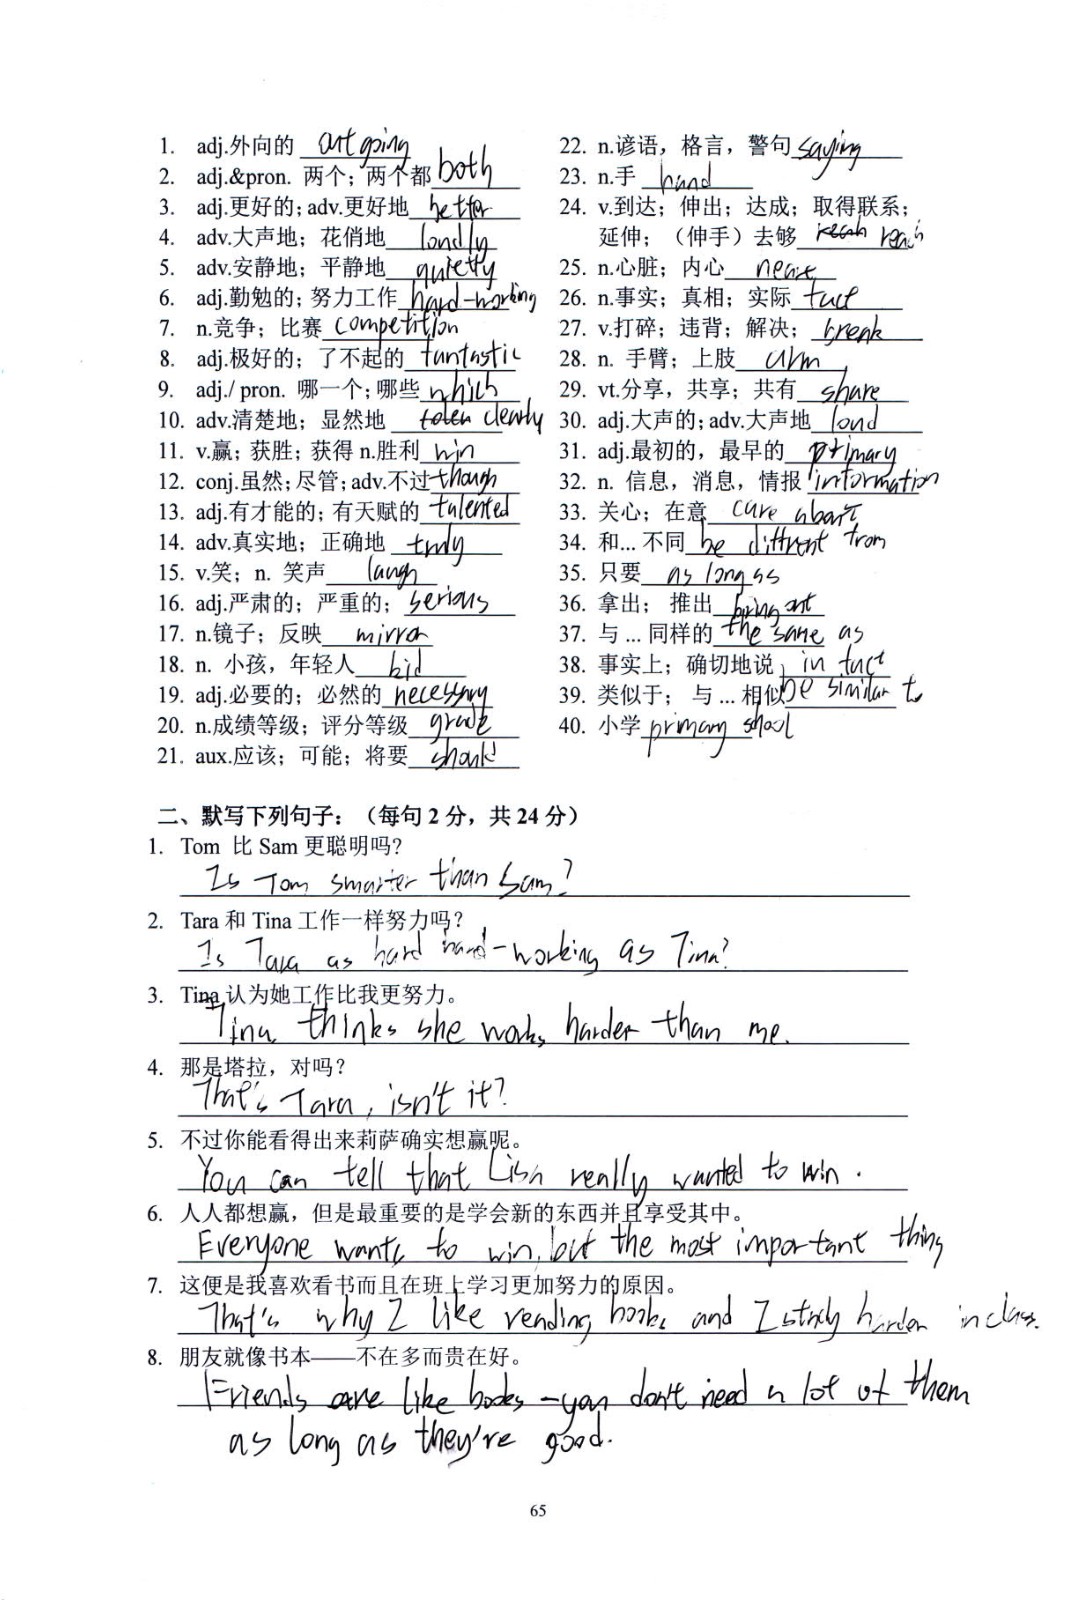 1. adj.外向的 outgoing
2. adj.&pron. 两个；两个都 both
3. adj.更好的；adv.更好地 better
4. adv.大声地；花俏地 loudly
5. adv.安静地；平静地 quietly
6. adj.勤勉的；努力工作 hard-working
7. n.竞争；比赛 competition
8. adj.极好的；了不起的 fantastic
9. adj./ pron. 哪一个；哪些 which
10. adv.清楚地；显然地 clearly
11. v.赢；获胜；获得 n.胜利 win
12. conj.虽然；尽管；adv.不过 though
13. adj.有才能的；有天赋的 talented
14. adv.真实地；正确地 truly
15. v.笑；n. 笑声 laugh
16. adj.严肃的；严重的； serious
17. n.镜子；反映 mirror
18. n. 小孩，年轻人 kid
19. adj.必要的；必然的 necessary
20. n.成绩等级；评分等级 grade
21. aux.应该；可能；将要 should
22. n.谚语，格言，警句 saying
23. n.手 hand
24. v.到达；伸出；达成；取得联系；
延伸；（伸手）去够 reach reach
25. n.心脏；内心 heart
26. n.事实；真相；实际 fact
27. v.打碎；违背；解决； break
28. n. 手臂；上肢 arm
29. vt.分享，共享；共有 share
30. adj.大声的；adv.大声地 loud
31. adj.最初的，最早的 primary
32. n. 信息，消息，情报 information
33. 关心；在意 care about
34. 和... 不同 be different from
35. 只要 as long as
36. 拿出； 推出 bring out
37. 与 ... 同样的 the same as
38. 事实上；确切地说 in fact
39. 类似于； 与 ... 相似 be similar to
40. 小学 primary school
二、默写下列句子：（每句 2 分，共 24 分）
1. Tom 比 Sam 更聪明吗？
Is Tom smarter than Sam?
2. Tara 和 Tina 工作一样努力吗？
Is Tara as hard hard-working as Tina?
3. Tina 认为她工作比我更努力。
Tina thinks she works harder than me.
4. 那是塔拉，对吗？
That's Tara, isn't it?
5. 不过你能看得出来莉萨确实想赢呢。
You can tell that Lisa really wanted to win.
6. 人人都想赢，但是最重要的是学会新的东西并且享受其中。
Everyone wants to win, but the most important thing
7. 这便是我喜欢看书而且在班上学习更加努力的原因。
That's why I like reading books and I study harder in class.
8. 朋友就像书本——不在多而贵在好。
Friends are like books —you don't need a lot of them
as long as they're good.
65